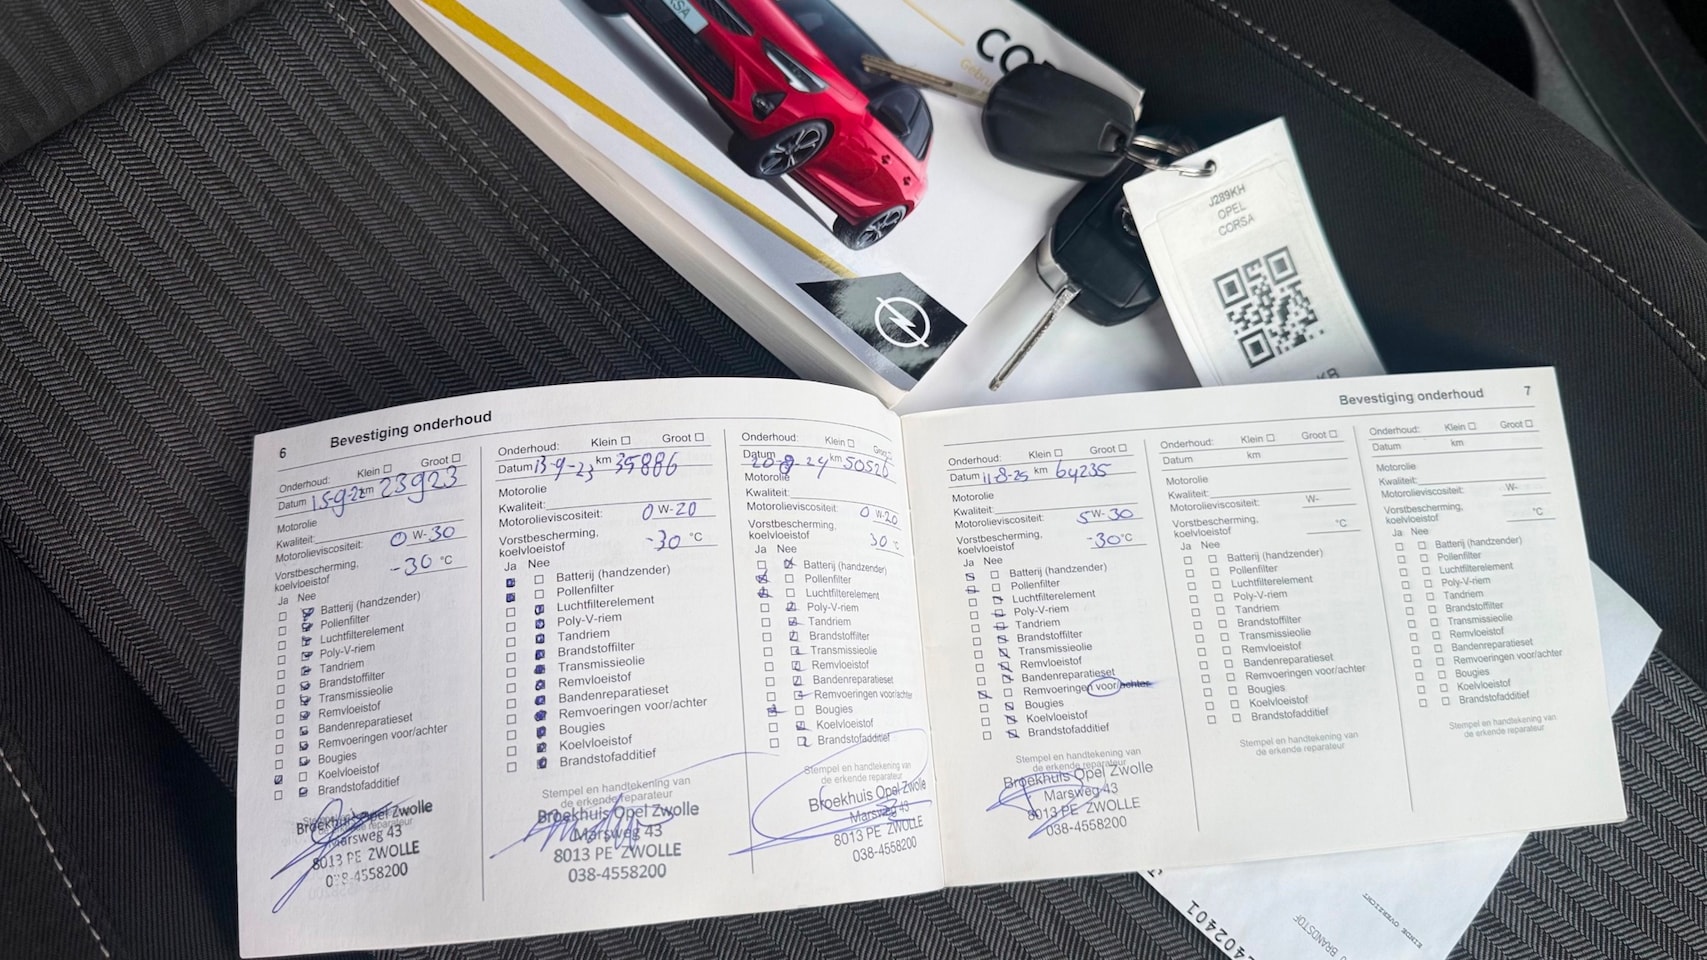 CORSA
J289KH
OPEL
CORSA
6 Bevestiging onderhoud
Onderhoud: Klein ☐ Groot ☐
Datum 15-9-22 km 23923
Motorolie
Kwaliteit:
Motorolieviscositeit: 0 W-30
Vorstbescherming,
koelvloeistof -30 °C
Ja Nee
Batterij (handzender)
Pollenfilter
Luchtfilterelement
Poly-V-riem
Tandriem
Brandstoffilter
Transmissieolie
Remvloeistof
Bandenreparatieset
Remvoeringen voor/achter
Bougies
Koelvloeistof
Brandstofadditief
Broekhuis Opel Zwolle
Marsweg 43
8013 PE ZWOLLE
038-4558200
Onderhoud: Klein ☐ Groot ☐
Datum 13-9-23 km 35886
Motorolie
Kwaliteit:
Motorolieviscositeit: 0 W-20
Vorstbescherming,
koelvloeistof -30 °C
Ja Nee
Batterij (handzender)
Pollenfilter
Luchtfilterelement
Poly-V-riem
Tandriem
Brandstoffilter
Transmissieolie
Remvloeistof
Bandenreparatieset
Remvoeringen voor/achter
Bougies
Koelvloeistof
Brandstofadditief
Stempel en handtekening van
de erkende reparateur
Broekhuis Opel Zwolle
Marsweg 43
8013 PE ZWOLLE
038-4558200
Onderhoud: Klein ☐ Groot ☐
Datum 20-8-24 km 50526
Motorolie
Kwaliteit:
Motorolieviscositeit: 0 W-20
Vorstbescherming,
koelvloeistof 30 °C
Ja Nee
Batterij (handzender)
Pollenfilter
Luchtfilterelement
Poly-V-riem
Tandriem
Brandstoffilter
Transmissieolie
Remvloeistof
Bandenreparatieset
Remvoeringen voor/achter
Bougies
Koelvloeistof
Brandstofadditief
Stempel en handtekening van
de erkende reparateur
Broekhuis Opel Zwolle
Marsweg 43
8013 PE ZWOLLE
038-4558200
Bevestiging onderhoud 7
Onderhoud: Klein ☐ Groot ☐
Datum 11-8-25 km 64235
Motorolie
Kwaliteit:
Motorolieviscositeit: 5 W-30
Vorstbescherming,
koelvloeistof -30 °C
Ja Nee
Batterij (handzender)
Pollenfilter
Luchtfilterelement
Poly-V-riem
Tandriem
Brandstoffilter
Transmissieolie
Remvloeistof
Bandenreparatieset
Remvoeringen voor/achter
Bougies
Koelvloeistof
Brandstofadditief
Stempel en handtekening van
de erkende reparateur
Broekhuis Opel Zwolle
Marsweg 43
8013 PE ZWOLLE
038-4558200
Onderhoud: Klein ☐ Groot ☐
Datum km
Motorolie
Kwaliteit:
Motorolieviscositeit: W-
Vorstbescherming,
koelvloeistof °C
Ja Nee
Batterij (handzender)
Pollenfilter
Luchtfilterelement
Poly-V-riem
Tandriem
Brandstoffilter
Transmissieolie
Remvloeistof
Bandenreparatieset
Remvoeringen voor/achter
Bougies
Koelvloeistof
Brandstofadditief
Stempel en handtekening van
de erkende reparateur
Onderhoud: Klein ☐ Groot ☐
Datum km
Motorolie
Kwaliteit:
Motorolieviscositeit: W-
Vorstbescherming,
koelvloeistof °C
Ja Nee
Batterij (handzender)
Pollenfilter
Luchtfilterelement
Poly-V-riem
Tandriem
Brandstoffilter
Transmissieolie
Remvloeistof
Bandenreparatieset
Remvoeringen voor/achter
Bougies
Koelvloeistof
Brandstofadditief
Stempel en handtekening van
de erkende reparateur
BRANDSTOF
EINDE OVERZICHT